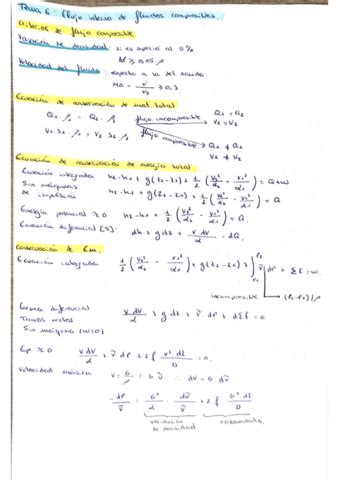 Tema 6: Flujo interno de fluidos compresibles.
Criterios de flujo compresible
Variación de densidad: si es superior al 5%
Δρ ≥ 0,05 ρ
Velocidad del fluido: respecto a la del sonido
Ma = v / vs ≥ 0,3
Ecuación de conservación de mat. total
Q1 · ρ1 = Q2 · ρ2 flujo incompresible Q1 = Q2
V1 = V2
V1 · S1 · ρ1 = V2 · S2 · ρ2 flujo compresible Q1 ≠ Q2
V1 ≠ V2
Ecuación de conservación de energía total
Ecuación integrada h2 - h1 + g(z2 - z1) + 1/2 (v2²/α2 - v1²/α1) = Q + W
Sin máquinas de impulsión h2 - h1 + g(z2 - z1) + 1/2 (v2²/α2 - v1²/α1) = Q
Energía potencial ≈ 0 h2 - h1 + 1/2 (v2²/α2 - v1²/α1) = Q
Ecuación diferencial dh + g dz + v dv/α = dQ.
Conservación de Em.
Ecuación integrada 1/2 (v2²/α2 - v1²/α1) + g(z2 - z1) + ∫ P1 P2 ṽ dP + Σf = W.
incompresible (P2 - P1)/ρ
Forma diferencial v dv/α + g dz + ṽ dP + dΣf = 0.
Tramos rectos
Sin máquina (W=0)
Ep ≈ 0 v dv/α + ṽ dP + 2f v² dl/D = 0.
Velocidad másica v = G/ρ = G ṽ ; dv = G dṽ
- dP/ṽ = G²/α dṽ/ṽ + 2f G² dl/D
variación de densidad rozamiento